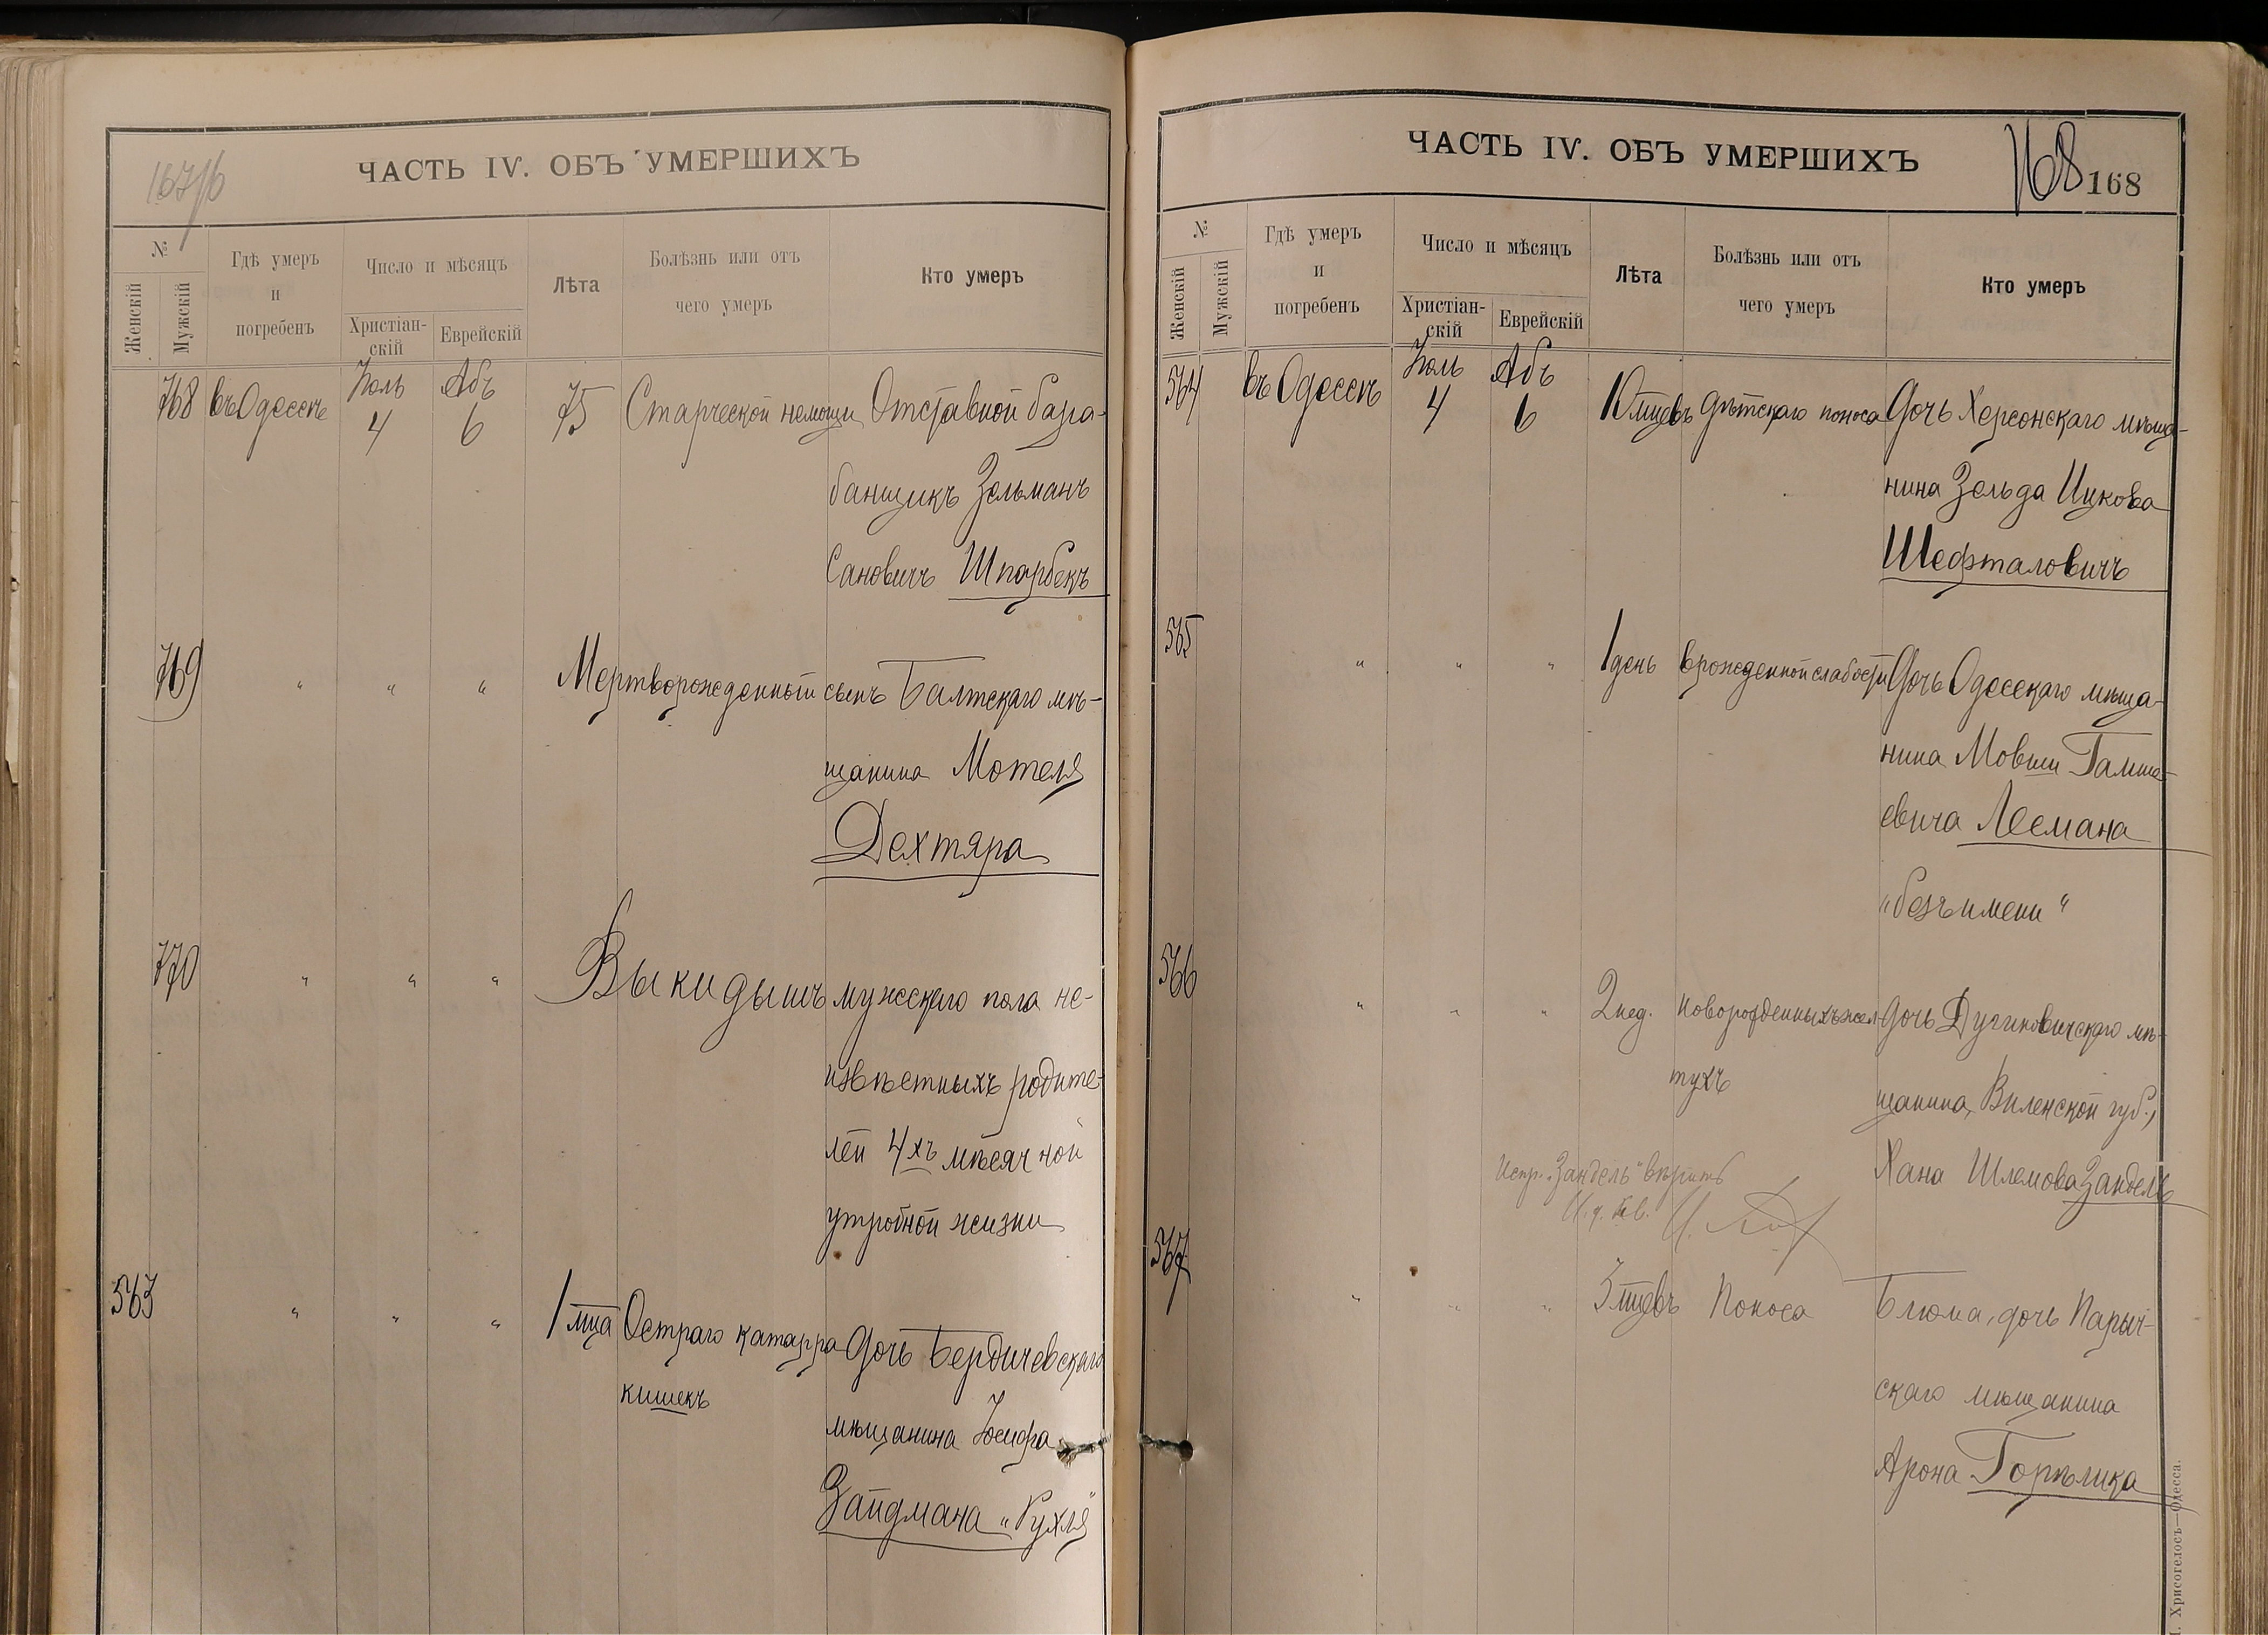 167/б
ЧАСТЬ IV. ОБЪ УМЕРШИХЪ
№
Женскій
Мужскій
Гдѣ умеръ
и
погребенъ
Число и мѣсяцъ
Христіан-
скій
Еврейскій
Лѣта
Болѣзнь или отъ
чего умеръ
Кто умеръ
768 въ Одессѣ Іюль 4 Абъ 6 75 Старческой немощи Отставной бара-
банщикъ Зельманъ
Сановичъ Шпарбекъ
769 " " " Мертворожденный сынъ Балтскаго мѣ-
щанина Мотеля
Дехтяра
770 " " " Выкидышъ мужескаго пола не-
извѣстныхъ родите-
лей 4хъ мѣсячной
утробной жизни
563 " " " 1 мца Остраго катарра Дочь Бердичевскаго
кишекъ
мѣщанина Іосифа
Зайдмана „Рухля"
ЧАСТЬ IV. ОБЪ УМЕРШИХЪ
168 168
№
Женскій
Мужскій
Гдѣ умеръ
и
погребенъ
Число и мѣсяцъ
Христіан-
скій
Еврейскій
Лѣта
Болѣзнь или отъ
чего умеръ
Кто умеръ
564 въ Одессѣ Іюль 4 Абъ 6 10 мцевъ Дѣтскаго поноса Дочь Херсонскаго мѣща-
нина Зельда Ицкова
Шефталовичъ
565 " " " 1 день врожденной слабости Дочь Одесскаго мѣща-
нина Мовши Гамша-
евича Леемана
„безъ имени"
566 " " " 2 нед. новорожденныхъ жел- Дочь Дугиновичскаго мѣ-
тухъ
щанина, Виленской губ.,
Хана Шлемова Зандель
Испр. „Зандель" вѣрить
567 " " " 3 мцевъ Поноса Блюма, дочь Парич-
скаго мѣщанина
Арона Горѣлика
Хрисогелосъ—Одесса.